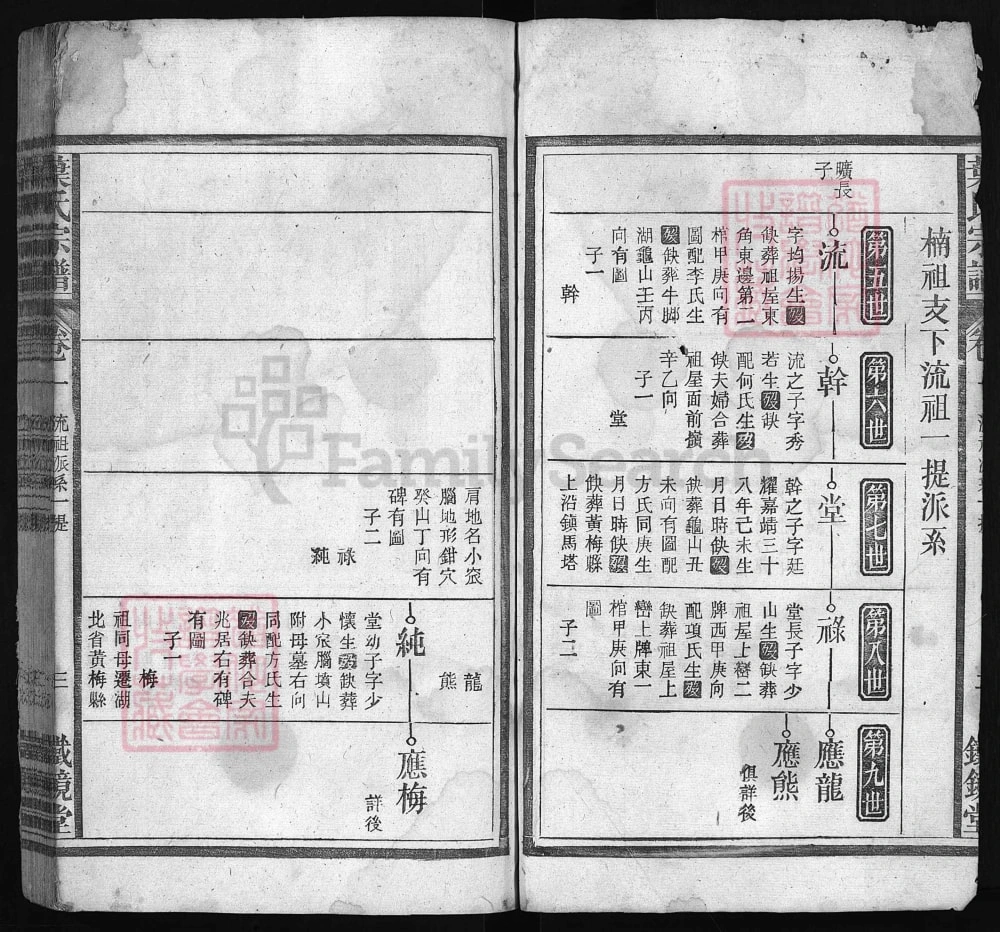 楠祖支下流祖一提派系
第五世
曠長
子
流
字均揚生歿
缺葬祖屋東
角東邊第二
棺甲庚向有
圖配李氏生
歿缺葬牛脚
湖龜山壬丙
向有圖
子一
幹
第六世
幹
流之子字秀
若生歿缺
配何氏生歿
缺夫婦合葬
祖屋面前嶺
辛乙向
子一
堂
第七世
堂
幹之子字廷
耀嘉靖三十
八年己未生
月日時缺歿
缺葬龜山丑
未向有圖配
方氏同庚生
月日時缺歿
缺葬黃梅縣
上沿鎮馬塔
第八世
祿
堂長子字少
山生歿缺葬
祖屋上㘭二
牌酉甲庚向
配項氏生歿
缺葬祖屋上
巒上牌東一
棺甲庚向有
圖
子二
第九世
應龍
應熊
俱詳後
葉氏宗譜
卷一
流祖派系一提
三
鐵鏡堂
肩地名小㝝
腦地形鉗穴
癸山丁向有
碑有圖
子二
祿
純
龍
熊
純
堂幼子字少
懷生歿缺葬
小㝝腦墳山
附母墓右向
同配方氏生
歿缺葬合夫
兆居右有碑
有圖
子一
梅
祖同母遷湖
北省黃梅縣
應梅
詳後
FamilySearch